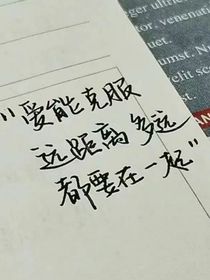 "爱能克服
远距离多远
都要在一起"
ger ultric
tor, venenatis
quet.
umst. N
velit sce